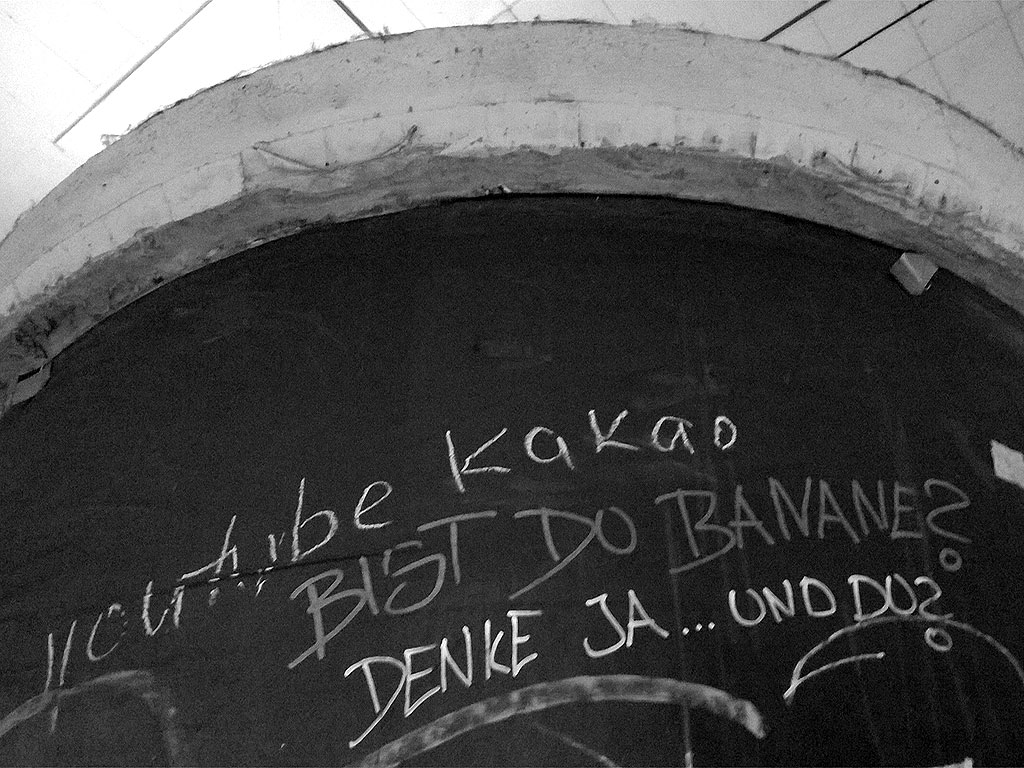 youtube kakao
BIST DO BANANE?
DENKE JA... UND DO?